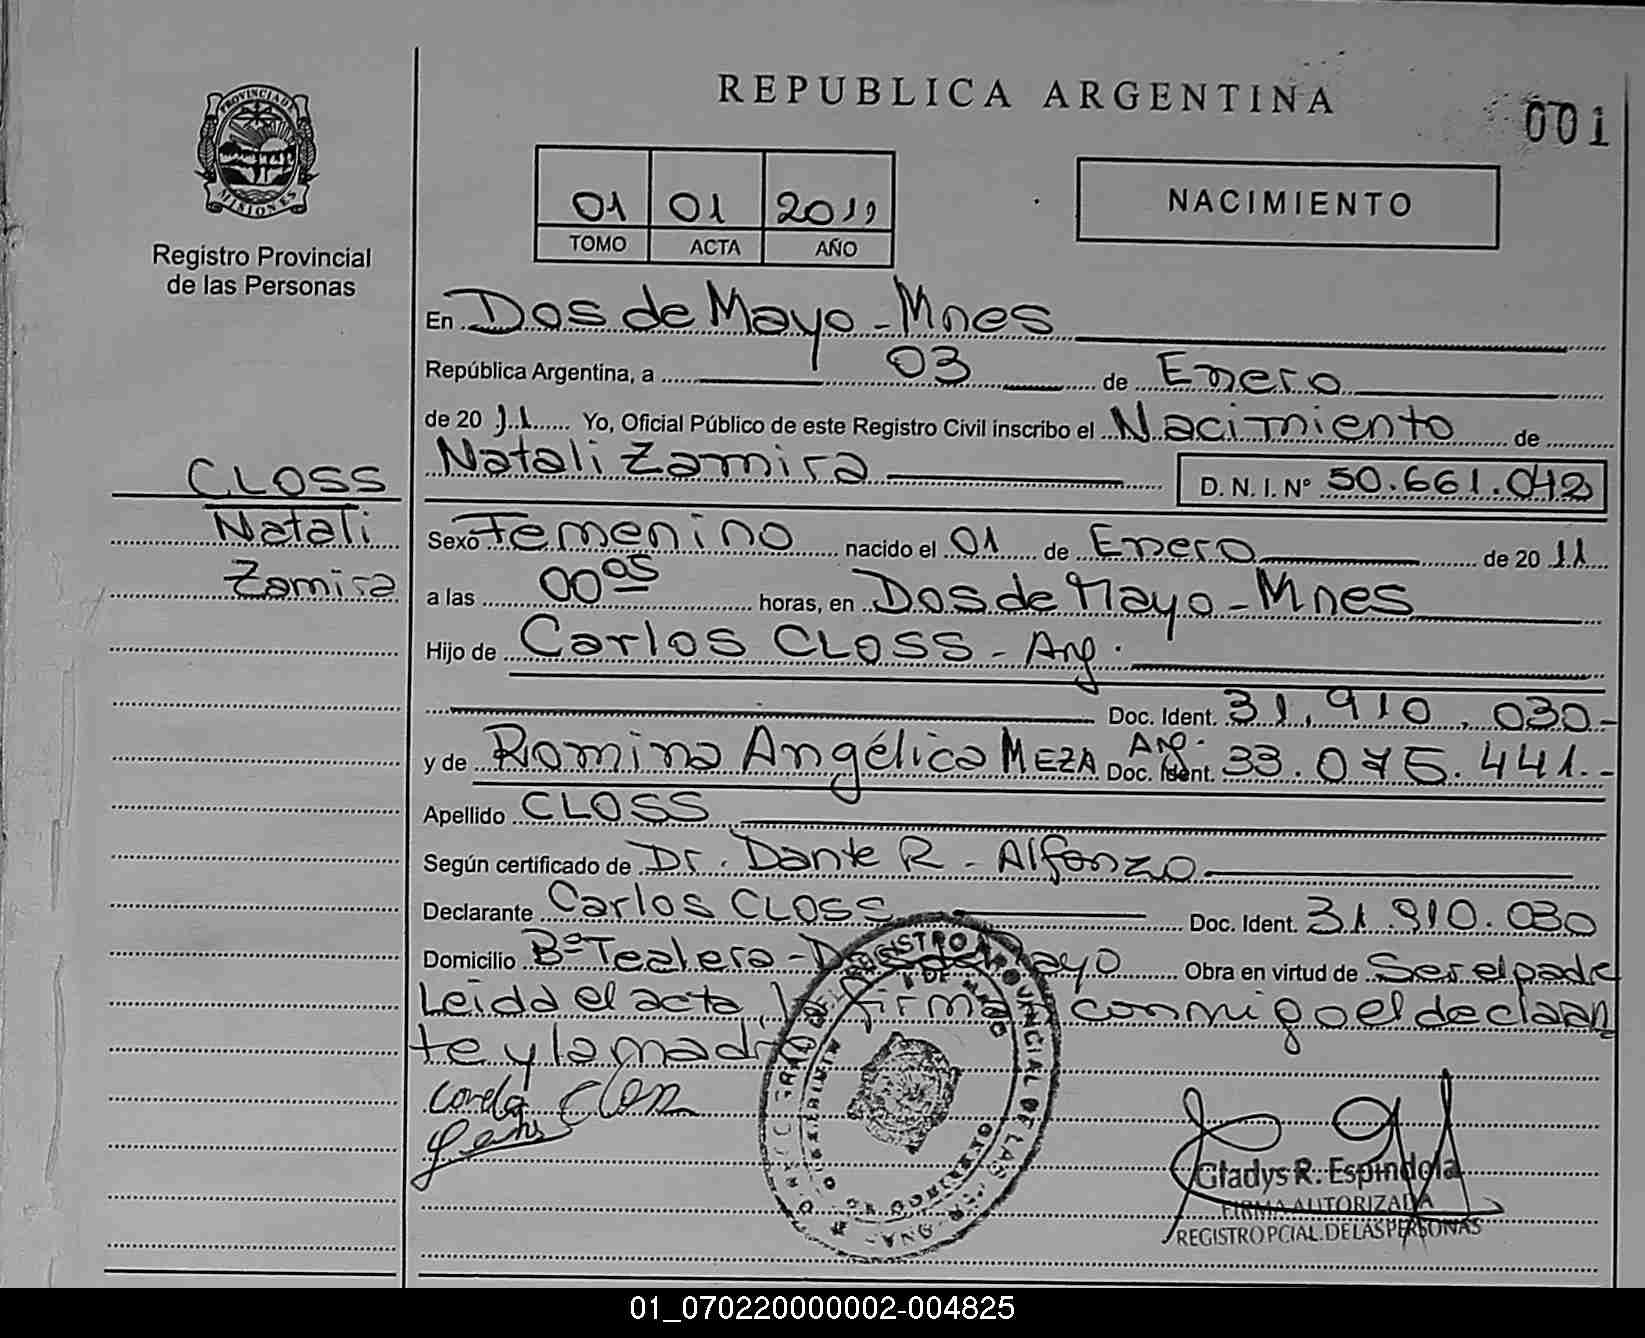 REPUBLICA ARGENTINA
001
PROVINCIA DE
MISIONES
Registro Provincial
de las Personas
01 01 2011
TOMO ACTA AÑO
NACIMIENTO
En Dos de Mayo - Mnes
República Argentina, a 03 de Enero
de 2011 Yo, Oficial Público de este Registro Civil inscribo el Nacimiento de
Natali Zamira D. N. I. Nº 50.661.042
CLOSS
Natali
Zamira
Sexo Femenino nacido el 01 de Enero de 2011
a las 00 05 horas, en Dos de Mayo - Mnes
Hijo de Carlos CLOSS - Arg.
Doc. Ident. 31.910.030-
y de Romina Angélica MEZA Arg. Doc. Ident. 33.075.441.-
Apellido CLOSS
Según certificado de Dr. Dante R - Alfonzo
Declarante Carlos CLOSS Doc. Ident. 31.910.030
Domicilio Bº Tealera - Mayo Obra en virtud de Ser el padre
Leida el acta, la firma conmigo el declaran
te y la madre
Gladys R. Espindola
FIRMA AUTORIZADA
REGISTRO PCIAL. DE LAS PERSONAS
01_070220000002-004825